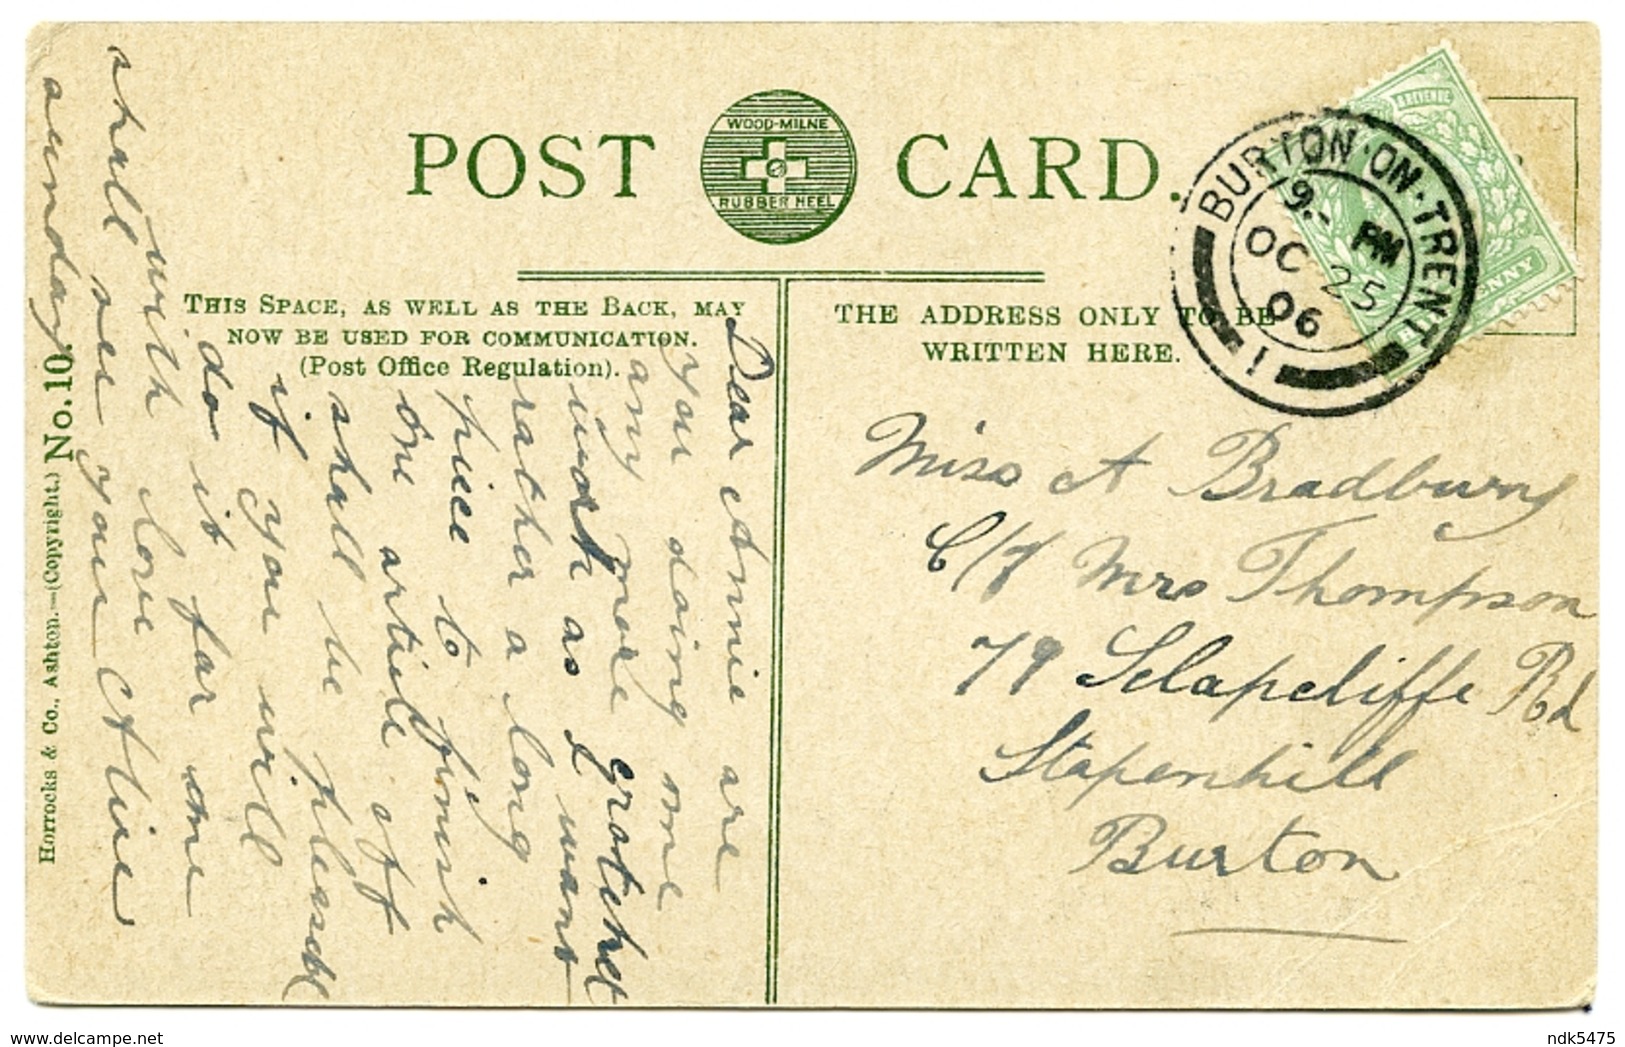 POST CARD.
WOOD-MILNE
RUBBER HEEL
THIS SPACE, AS WELL AS THE BACK, MAY
NOW BE USED FOR COMMUNICATION.
(Post Office Regulation).
THE ADDRESS ONLY TO BE
WRITTEN HERE.
& REVENUE
PENNY
BURTON·ON·TRENT
9.- PM
OC 25
06
1
Miss A Bradbury
C/o Mrs Thompson
79 Sclapcliffe Rd
Stapenhill
Burton
Dear Annie are
you doing me
any more crotchet
work as I want
rather a long
piece to finish
one article off
shall be pleased
if you will
do it far me
with love
shall see you
sunday
Horrocks & Co., Ashton.—(Copyright.) No. 10.
ndk5475